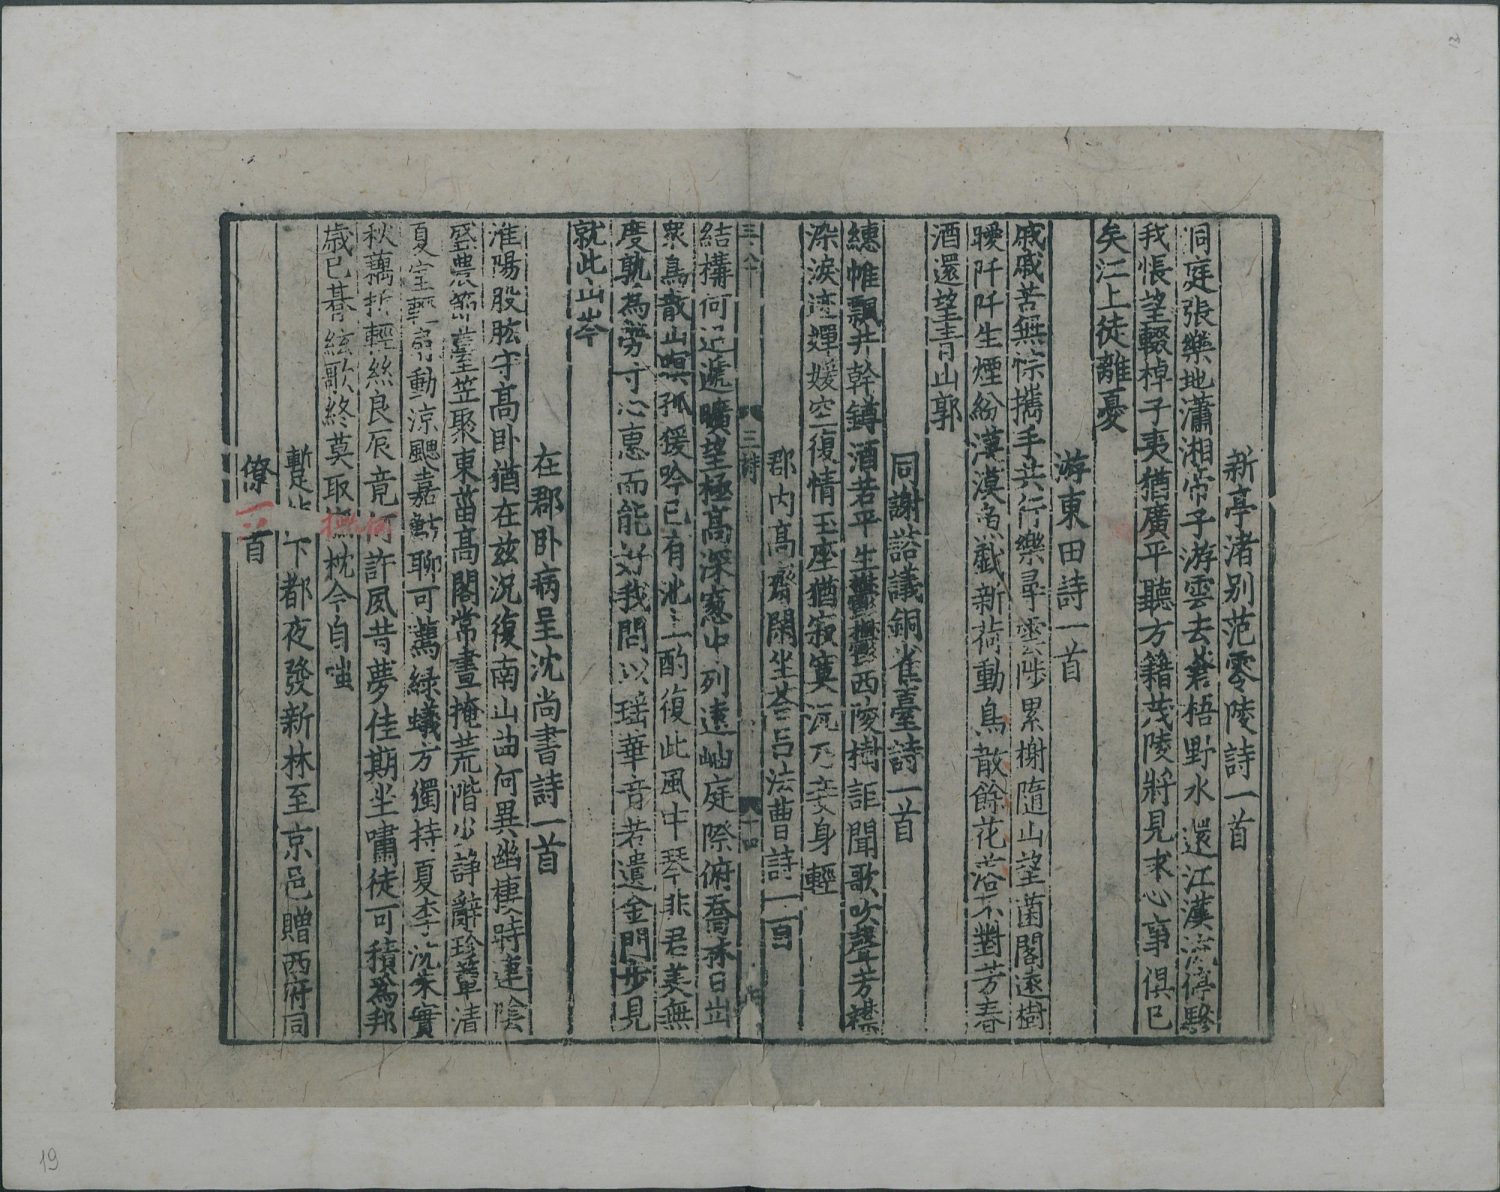 新亭渚别范零陵詩一首
洞庭張樂地瀟湘帝子游雲去蒼梧野水還江漢流停驂
我悵望輟棹子夷猶廣平聽方籍茂陵將見求心事俱已
矣江上徒離憂
游東田詩一首
戚戚苦無悰攜手共行樂尋雲陟累榭隨山望菌閣遠樹
曖阡阡生煙紛漠漠魚戲新荷動鳥散餘花落不對芳春
酒還望青山郭
同謝諮議銅雀臺詩一首
繐帷飄井幹鐏酒若平生鬱鬱西陵樹詎聞歌吹聲芳襟
染淚迹嬋媛空復情玉座猶寂寞况乃妾身輕
郡内高齋閑坐荅吕法曹詩一首
三詩
十四
結構何迢遰曠望極高深窻中列遠岫庭際俯喬林日出
衆鳥散山暝孤猨吟已有池上酌復此風中琴非君美無
度孰爲勞寸心惠而能好我問以瑶華音若遺金門步見
就此山岑
在郡卧病呈沈尚書詩一首
淮陽股肱守高卧猶在兹况復南山曲何異幽棲時連陰
盛農節臺笠聚東菑高閣常晝掩荒階少諍辭珍簟清
夏室輕扇動涼颸嘉魴聊可薦緑蟻方獨持夏李沈朱實
秋藕折輕絲良辰竟何許夙昔夢佳期坐嘯徒可積爲邦
歲已朞絃歌終莫取撫枕令自嗤
蹔使下都夜發新林至京邑贈西府同
僚一首
19